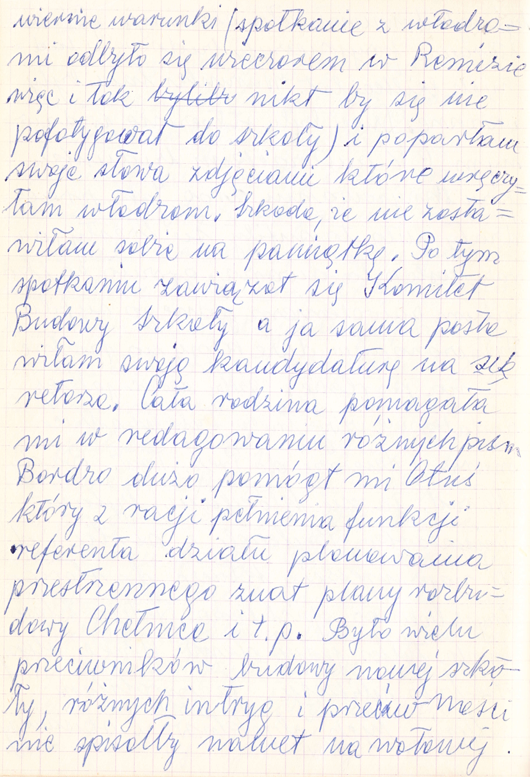 wierne warunki (spotkanie z władza=
mi odbyło się wieczorem w Remizie
więc i tak byliby nikt by się nie
pofatygował do szkoły) i poparłam
swoje słowa zdjęciami które wręczy=
łam władzom. Szkoda, że nie zosta=
wiłam sobie na pamiątkę. Po tym
spotkaniu zawiązał się Komitet
Budowy Szkoły a ja sama posta
wiłam swoją kandydaturę na sek
retarza. Cała rodzina pomagała
mi w redagowaniu różnych pism
Bardzo dużo pomógł mi
który z racji pełnienia funkcji
referenta działu planowania
przestrzennego znał plany rozbu=
dowy Chełmca i t.p. Było wielu
przeciwników budowy nowej szko
ły, różnych intryg i przeciwności
nie spisałby nawet na wołowej.